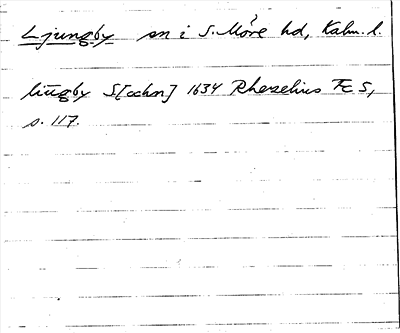 Ljungby sn i S. Möre hd, Kalm. l.
liũgby S[ochn] 1634 Rhezelius Fc 5,
s. 117.